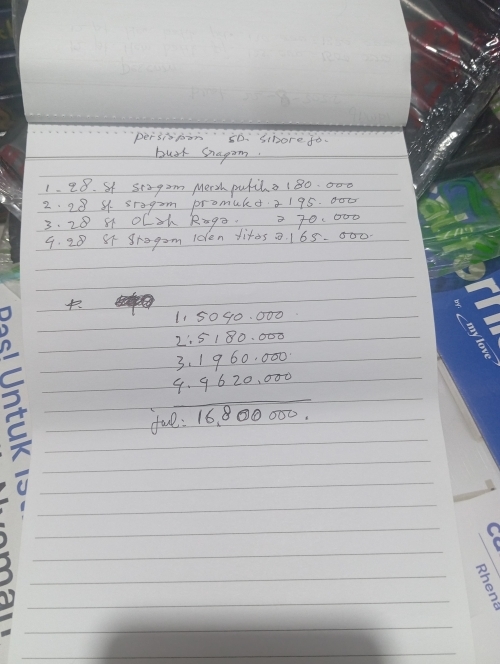 persiapan SD. Sidorejo.
buat sragam.
1. 28 st sragam Merah putih a 180.000
2. 28 st sragam pramuka. a 195.000
3. 28 st OLah Raga. a 70.000
4. 28 st Sragam Iden titas a 165.000
1. 5040.000
2. 5180.000
3. 1960.000
4. 4620.000
Jml: 16,800 000.
Dasi Untuk
by: my love
Rhena